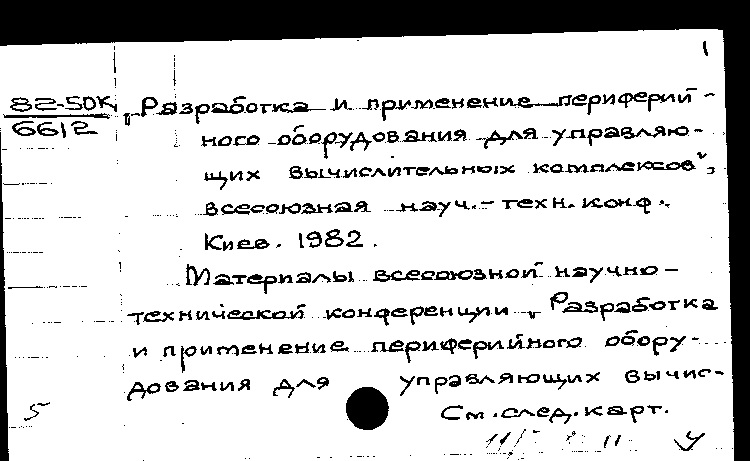 1
82-50К
6612
„Разработка и применение периферий-
ного оборудования для управляю-
щих вычислительных комплексов",
всесоюзная науч.-техн. конф.
Киев. 1982.
Материалы всесоюзной научно-
технической конференции „Разработка
и применение периферийного обору-
дования для управляющих вычис-
5
См. след. карт.